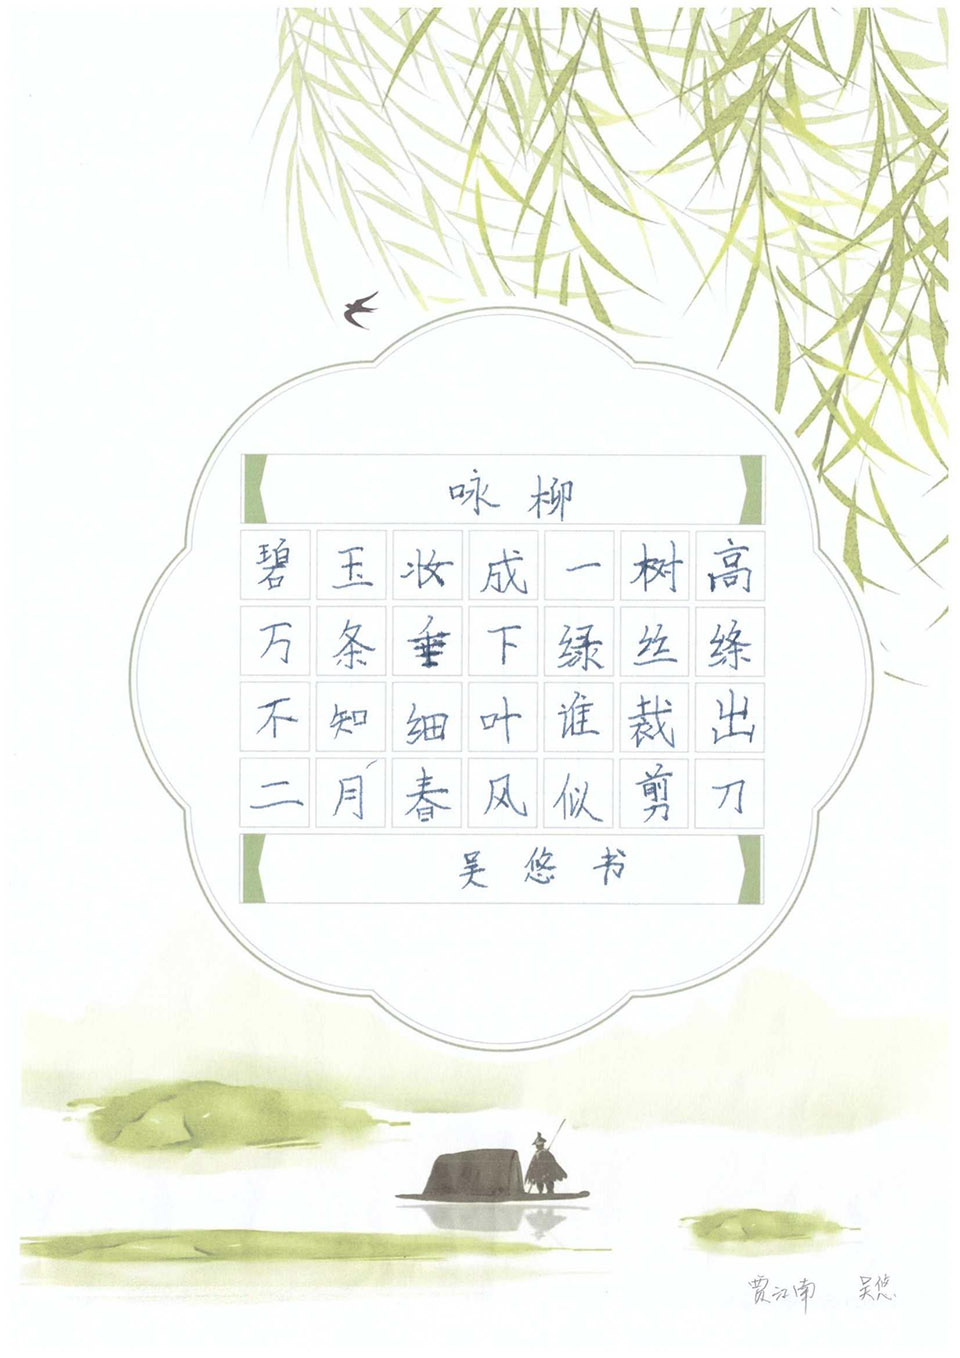 咏柳
碧玉妆成一树高
万条垂下绿丝绦
不知细叶谁裁出
二月春风似剪刀
吴悠书
贾江南 吴悠